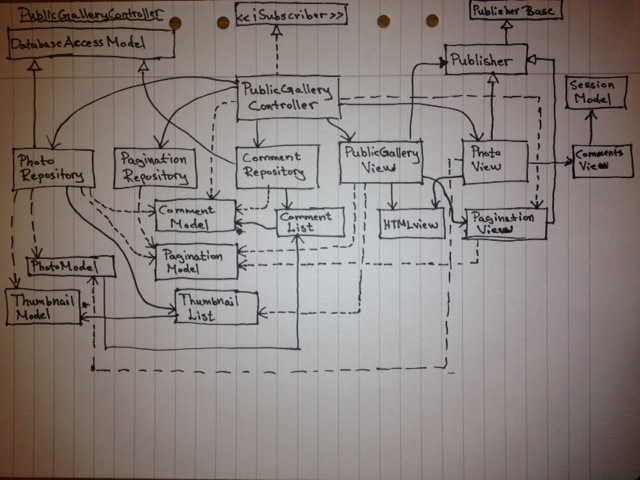 PublicGalleryController
<<iSubscriber>>
Publisher Base
DatabaseAccess Model
Publisher
PublicGallery
Controller
Session
Model
Photo
Repository
Pagination
Repository
Comment
Repository
PublicGallery
View
Photo
View
Comments
View
Comment
Model
Comment
List
HTMLview
Pagination
View
Pagination
Model
PhotoModel
Thumbnail
Model
Thumbnail
List